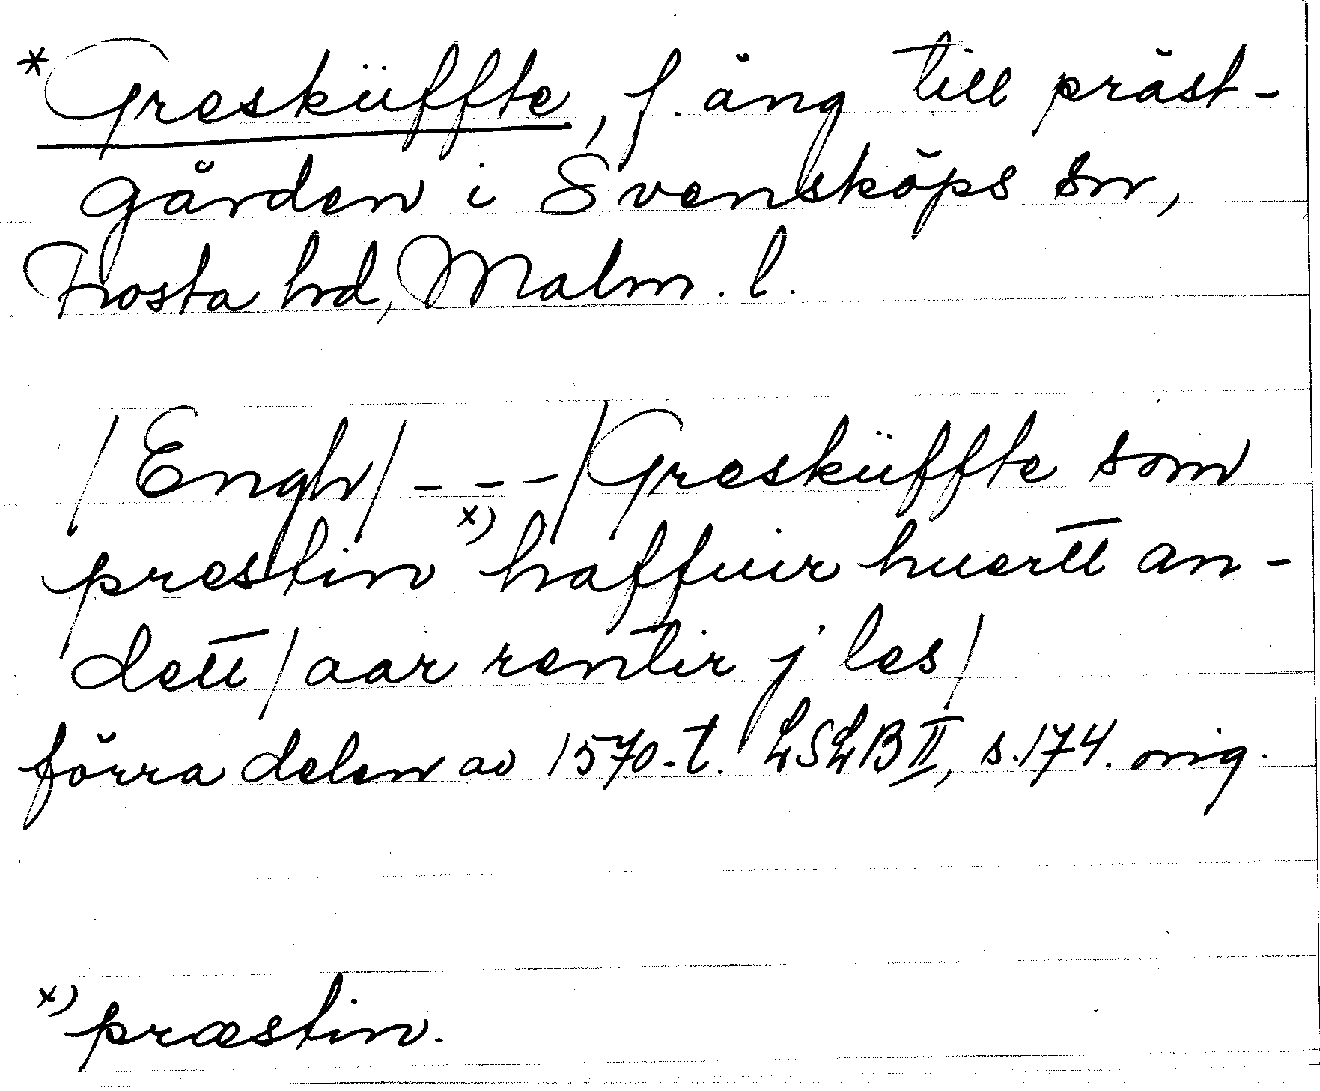 *Gresküffte, f. äng till präst-
gården i Svensköps sn,
Frosta hd, Malm. l.
/Engh/ - - - /Gresküffte som
prestin x) haffuir huertt an-
dett/aar rentir j les/
förra delen av 1570-t. LSLB II, s.174. orig.
x) præstin.